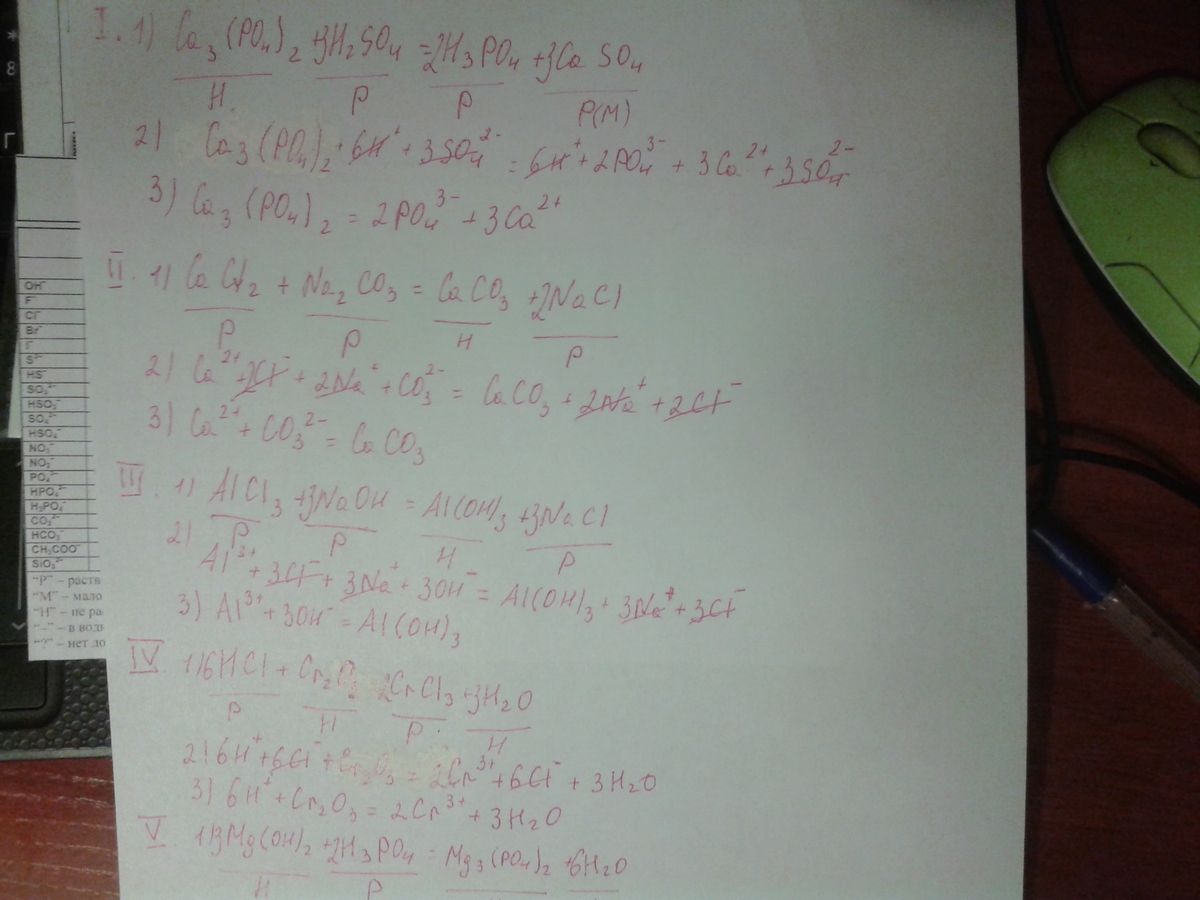 I. 1) Ca₃(PO₄)₂ + 3H₂SO₄ = 2H₃PO₄ + 3CaSO₄
Н Р Р Р(М)
2) Ca₃(PO₄)₂ + 6H⁺ + 3SO₄²⁻ = 6H⁺ + 2PO₄³⁻ + 3Ca²⁺ + 3SO₄²⁻
3) Ca₃(PO₄)₂ = 2PO₄³⁻ + 3Ca²⁺
II. 1) CaCl₂ + Na₂CO₃ = CaCO₃ + 2NaCl
Р Р Н Р
2) Ca²⁺ + 2Cl⁻ + 2Na⁺ + CO₃²⁻ = CaCO₃ + 2Na⁺ + 2Cl⁻
3) Ca²⁺ + CO₃²⁻ = CaCO₃
III. 1) AlCl₃ + 3NaOH = Al(OH)₃ + 3NaCl
Р Р Н Р
2) Al³⁺ + 3Cl⁻ + 3Na⁺ + 3OH⁻ = Al(OH)₃ + 3Na⁺ + 3Cl⁻
3) Al³⁺ + 3OH⁻ = Al(OH)₃
IV. 1) 6HCl + Cr₂O₃ 2CrCl₃ + 3H₂O
Р Н Р Н
2) 6H⁺ + 6Cl⁻ + Cr₂O₃ = 2Cr³⁺ + 6Cl⁻ + 3H₂O
3) 6H⁺ + Cr₂O₃ = 2Cr³⁺ + 3H₂O
V. 1) 3Mg(OH)₂ + 2H₃PO₄ = Mg₃(PO₄)₂ + 6H₂O
Н Р
*
8
Г
OH⁻
F⁻
Cl⁻
Br⁻
I⁻
S²⁻
HS⁻
SO₃²⁻
HSO₃⁻
SO₄²⁻
HSO₄⁻
NO₃⁻
NO₂⁻
PO₄³⁻
HPO₄²⁻
H₂PO₄⁻
CO₃²⁻
HCO₃⁻
CH₃COO⁻
SiO₃²⁻
“Р” – раств
“М” – мало
“Н” – не ра
“–” – в водн
“?” – нет до